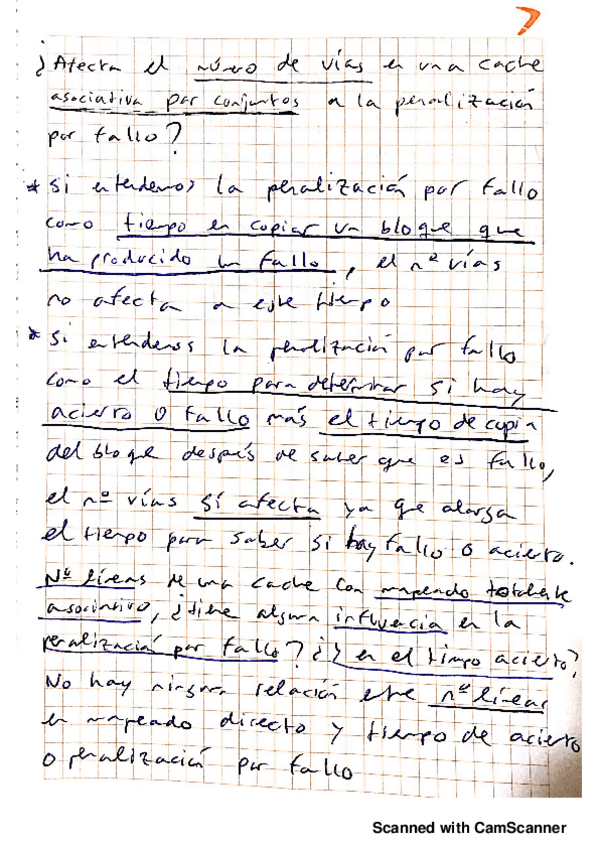 7
¿Afecta el número de vías en una cache
asociativa por conjuntos a la penalización
por fallo?
* Si entendemos la penalización por fallo
como tiempo en copiar un bloque que
ha producido un fallo, el nº vías
no afecta a este tiempo
* Si entendemos la penalización por fallo
como el tiempo para determinar si hay
acierto o fallo más el tiempo de copia
del bloque después de saber que es fallo,
el nº vías sí afecta ya que alarga
el tiempo para saber si hay fallo o acierto.
Nº líneas de una cache con mapeado totalmente
asociativo, ¿tiene alguna influencia en la
penalización por fallo? ¿Y en el tiempo acierto?
No hay ninguna relación entre nº líneas
en mapeado directo y tiempo de acierto
o penalización por fallo
Scanned with CamScanner